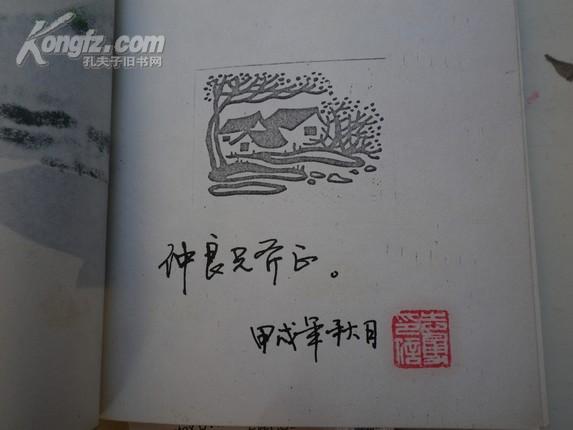 Kongfz.com
孔夫子旧书网
仲良兄斧正。
甲戌年秋月